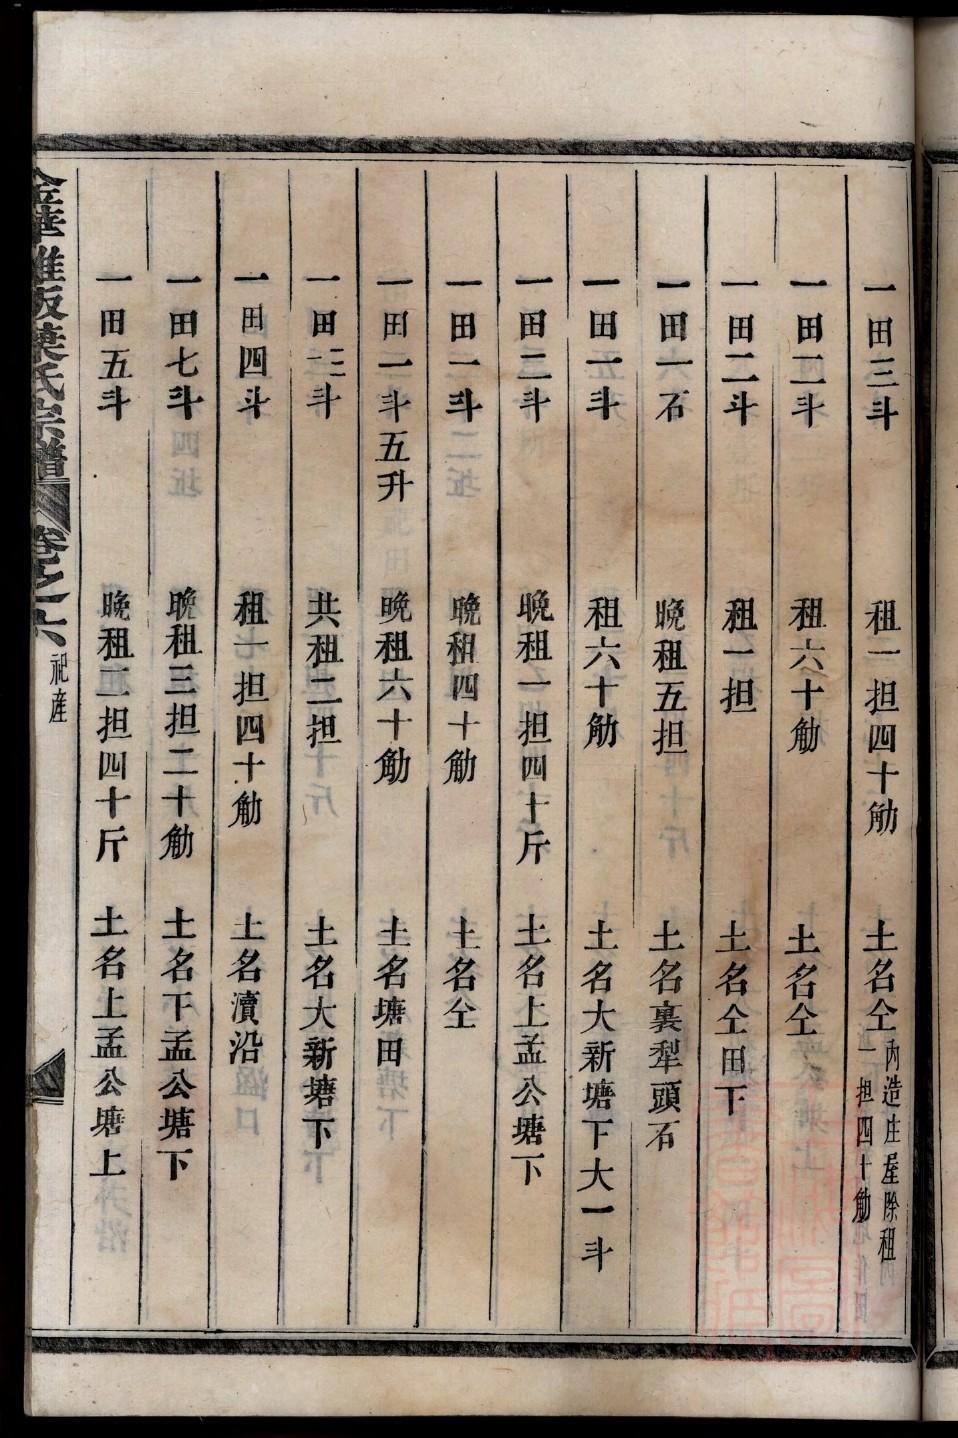 一田三斗 租一担四十觔 土名仝 內造庄屋除租一担四十觔
一田二斗 租六十觔 土名仝
一田二斗 租一担 土名仝田下
一田一石 晚租五担 土名裏犁頭石
一田一斗 租六十觔 土名大新塘下大一斗
一田二斗 晚租一担四十斤 土名上孟公塘下
一田一斗 晚租四十觔 土名仝
一田一斗五升 晚租六十觔 土名塘田
一田三斗 共租二担 土名大新塘下
一田四斗 租一担四十觔 土名瀆沿
一田七斗 晚租三担二十觔 土名下孟公塘下
一田五斗 晚租二担四十斤 土名上孟公塘上
金華雅畈葉氏宗譜 卷之六 祀產